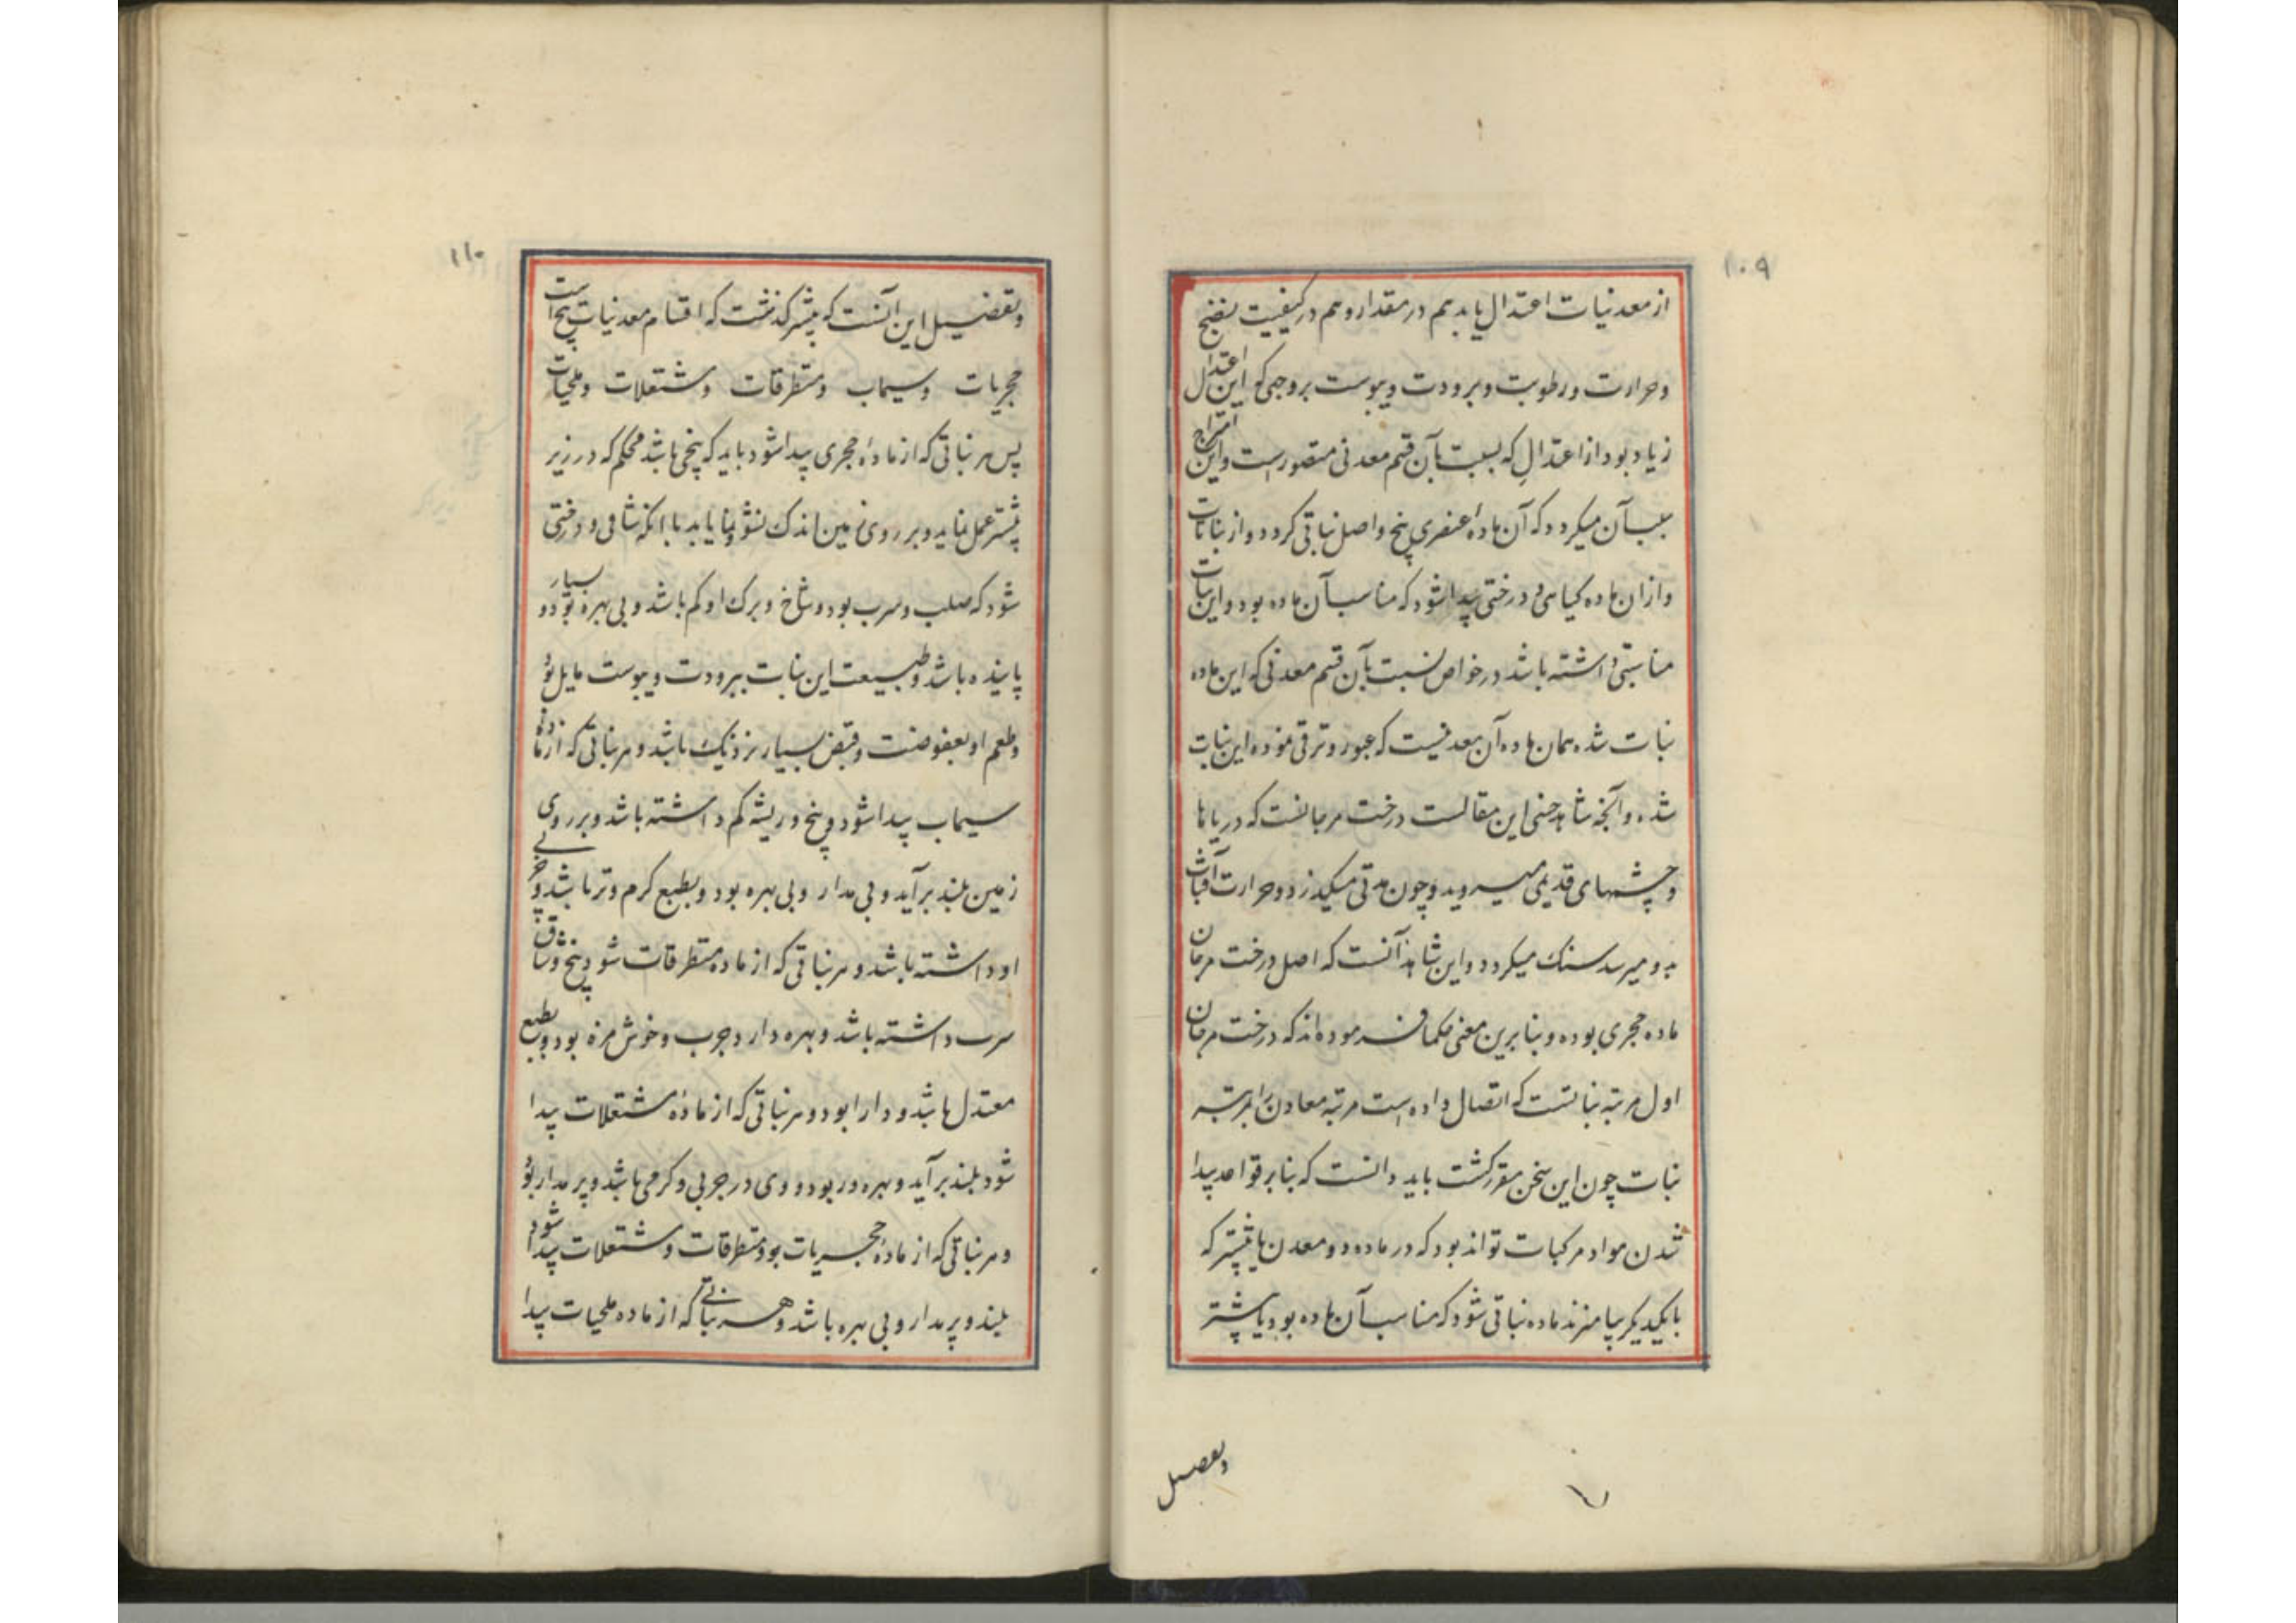 ۱۰۹
از معدنیات اعتدال یابد هم در مقدار و هم در کیفیت نضج
و حرارت و رطوبت و برودت و یبوست بر وجهی که این اعتدال
زیاد بود از اعتدال که نسبت بآن قسم معدنی متصور است و این امتزاج
سبب آن میکردد که آن ماده عنصری بیخ و اصل نباتی کردد و از نباتات
و ازان ماده کیاهی و درختی پیدا شود که مناسب آن ماده بود و این نبات
مناسبتی داشته باشد در خواص نسبت بآن قسم معدنی که این ماده
نبات شده همان ماده آن معدنیست که عبور و ترقی نموده این نبات
شده و آنچه شاهد این مقالست درخت مرجانست که در دریاها
و چشمهای قدیمی میروید و چون مدتی میکذرد و حرارت آفتاب
بدو میرسد سنک میکردد و این شاهد آنست که اصل درخت مرجان
ماده حجری بوده و بنابرین معنی حکما فرموده اند که درخت مرجان
اول مرتبه نباتست که اتصال داده است مرتبه معادن را بمرتبه
نبات چون این سخن مقرر کشت باید دانست که بنابر قواعد پیدا
شدن مواد مرکبات تواند بود که در ماده دو معدن یا بیشتر که
بایکدیکر بیامیزند ماده نباتی شود که مناسب آن ماده بود یا بیشتر
وتفصیل
۱۱۰
و تفضیل این آنست که پیشتر کذشت که اقسام معدنیات پنج است
حجریات و سیماب و متطرقات و مشتعلات و ملحیات
پس هر نباتی که از مادهٔ حجری پیدا شود باید که بیخی باشد محکم که در زیر
بیشتر عمل نماید و بر روی زمین اندک نشو و نما یابد با انکه شاخی و درختی
شود که صلب و سرب بود و شاخ و برک او کم باشد و بی بهره بود و بسیار
پاینده باشد و طبیعت این نبات ببرودت و یبوست مایل بود
و طعم او بعفوصت و قبض بسیار نزدیک باشد و هر نباتی که از ماده
سیماب پیدا شود و بیخ و ریشه کم داشته باشد و بر روی
زمین بلند برآید و بی مدار و بی بهره بود و بطبع کرم و تر باشد و
او داشته باشد و هر نباتی که از ماده متطرقات شود بیخ و شاق
سرب داشته باشد و بهره دار و چرب و خوش مزه بود و بطبع
معتدل باشد و دارا بود و هر نباتی که از مادهٔ مشتعلات پیدا
شود بلند برآید و بهره ور بود و وی در چربی و کرمی باشد و پر مدار بود
و هر نباتی که از مادهٔ حجریات بود متطرقات و مشتعلات پیدا شود
بلند و پر مدار و بی بهره باشد و هر نباتی که از ماده ملحیات پیدا